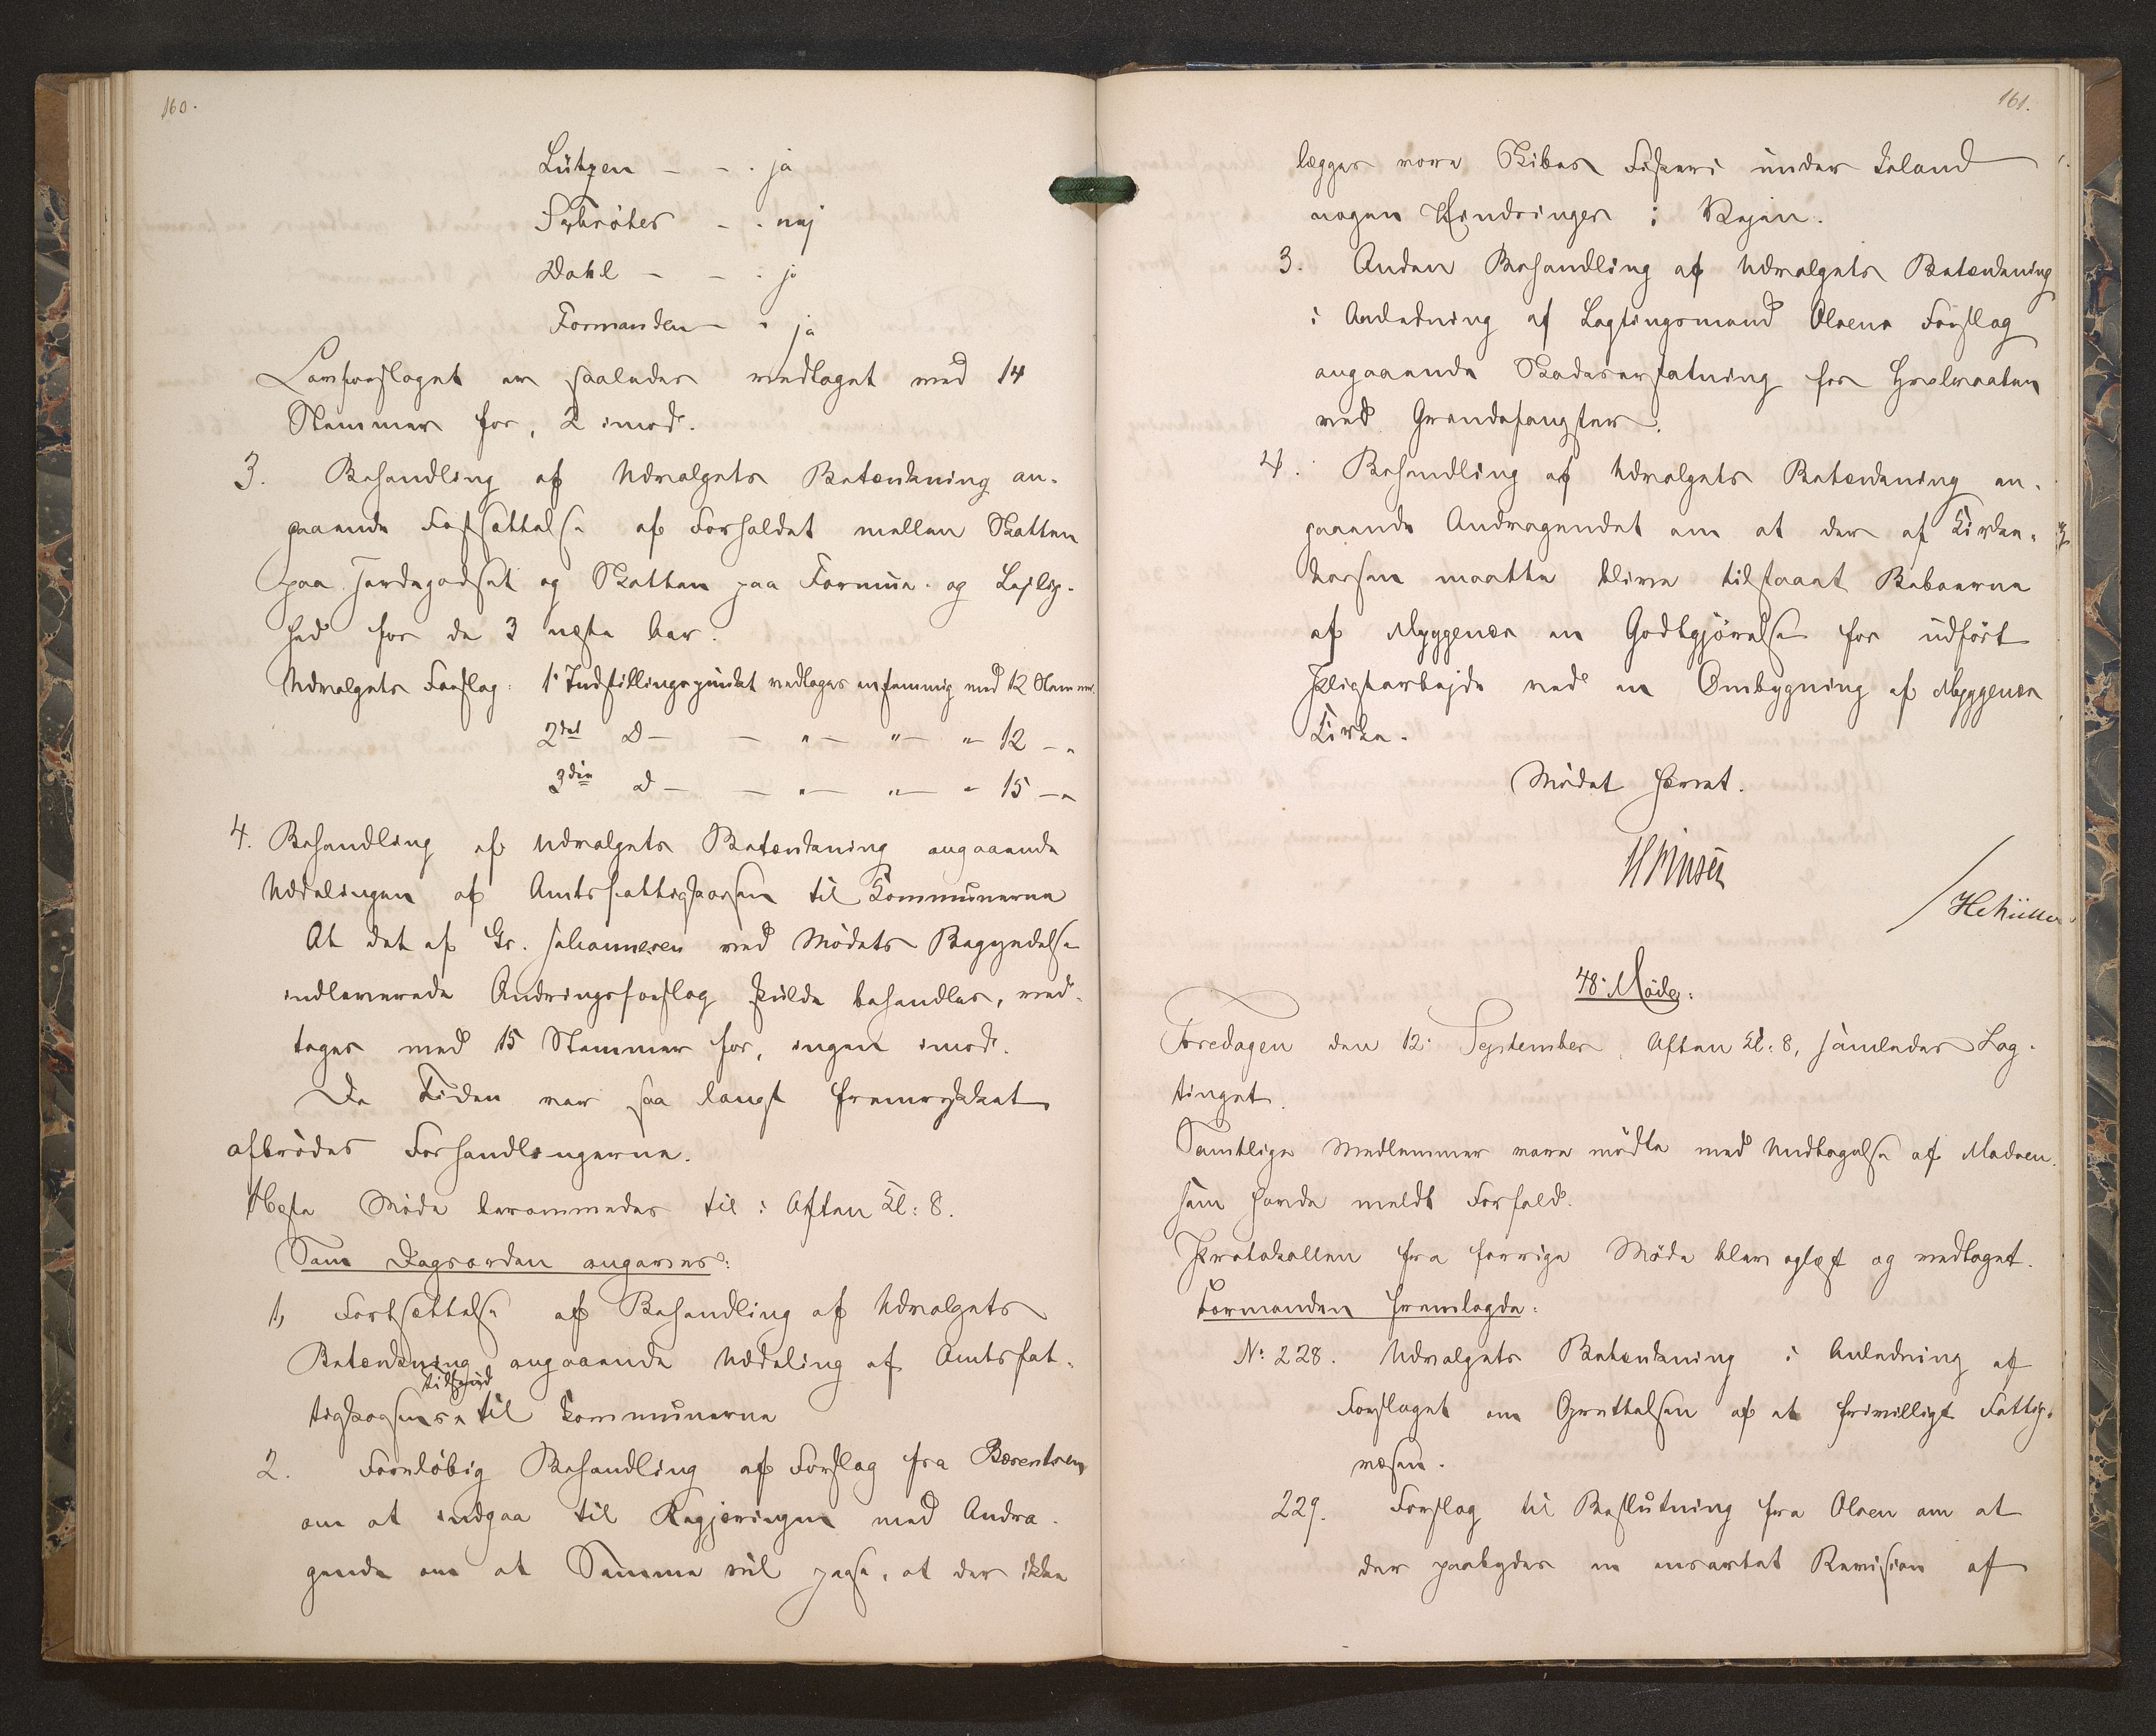 160.
Lützen - - . ja
Sybrötes - . nej
Dahl - - . ja
Formanden - . ja
Lovforslaget er saaledes vedtaget med 14
Stemmer for, 2 imod.
3. Behandling af Udvalgets Betænkning an-
gaaende Fastsættelse af Forholdet mellem Skatten
paa Jordegodset og Skatten paa Formue- og Lejlig-
hed for de 3 næste Aar.
Udvalgets Forslag: 1' Indstillingspunkt vedtages enstemmig med 12 Stemmer.
2det D - - " - " - " 12 - "
3die D - - " - " - " 15 - "
4. Behandling af Udvalgets Betænkning angaaende
Uddelingen af Amtsfattigkassen til Kommunerne
At det af Gr. Johannesen ved Mødets Begyndelse
indleverede Ændringsforslag skulde behandles, ved-
toges med 15 Stemmer for, ingen imod.
Da Tiden var saa langt fremrykket
afbrödes Forhandlingerne.
Næste Møde berammedes til: Aften Kl: 8.
Som Dagsorden angaves:
1, Fortsættelse af Behandling af Udvalgets
Betænkning angaaende Uddeling af Amtsfat-
tilhørd
tigkassens til Kommunerne
2. Foreløbig Behandling af Forslag fra Bærentsen
om at indgaa til Regjeringen med Andra-
gende om at Samme vil paase, at der ikke
161.
lægges vore Skibes Fiskeri under Island
nogen Hindringer i Vejen.
3. Anden Behandling af Udvalgets Betænkning
i Anledning af Lagtingsmand Olsens Forslag
angaaende Skadeserstatning for Hvalvaaben
ved Grindefangster.
4. Behandling af Udvalgets Betænkning an-
gaaende Andragendet om at der af Kirke-
kassen maatte blive tilstaaet Beboerne
af Myggenæs en Godtgjörelse for udfört
Pligtarbejde ved en Ombygning af Myggenæs
Kirke.
Mödet hævet.
HFinsen
/HCMüller
48' Möde:
Torsdagen den 12' September, Aften Kl: 8, samledes Lag-
tinget.
Samtlige Medlemmer vare mödte med Undtagelse af Madsen
som havde meldt Forfald.
Protokollen fra forrige Möde blev oplæst og vedtaget.
Formanden fremlagde:
No: 228. Udvalgets Betænkning i Anledning af
Forslaget om Oprettelsen af et frivilligt Fattig-
væsen.
229. Forslag til Beslutning fra Olsen om at
der paabydes en ensartet Revision af